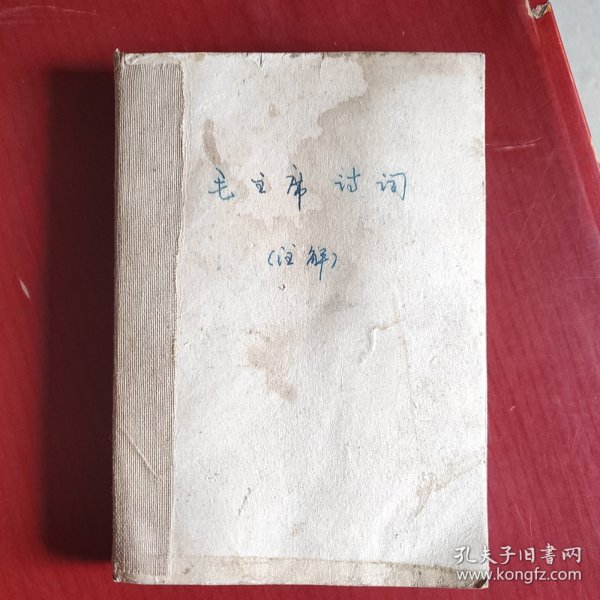 毛主席诗词
(注解)
孔夫子旧书网
www.kongfz.com